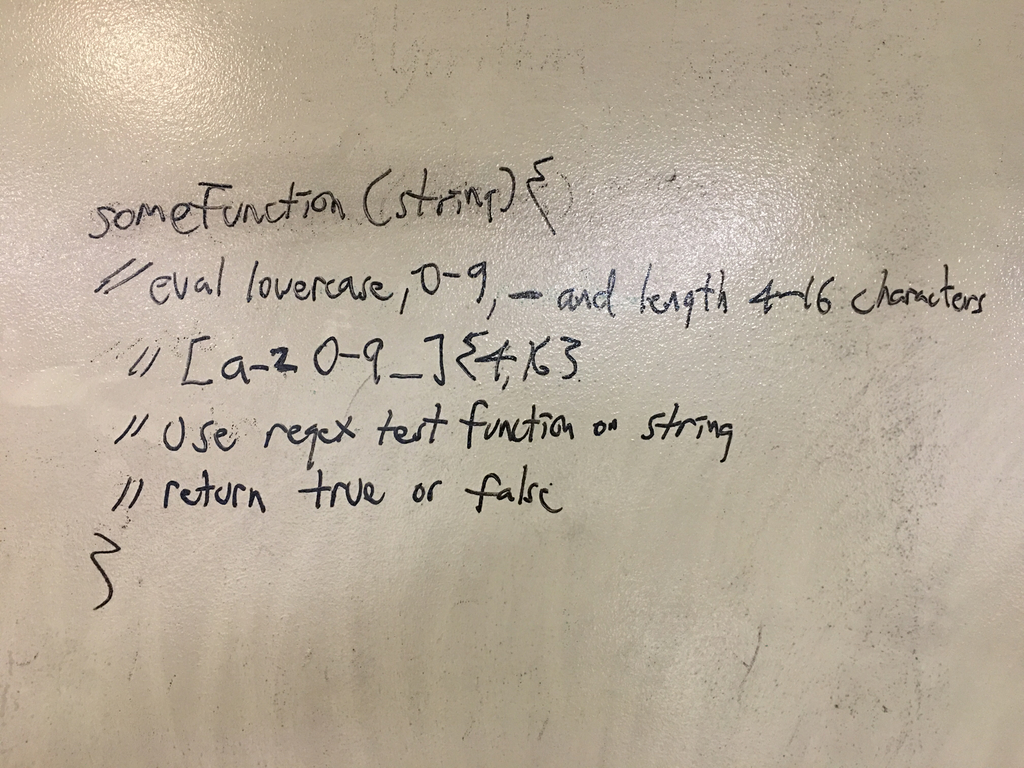 someFunction (string) {
// eval lowercase, 0-9, _ and length 4-16 characters
// [a-z 0-9_]{4,16}
// Use regex test function on string
// return true or false
}